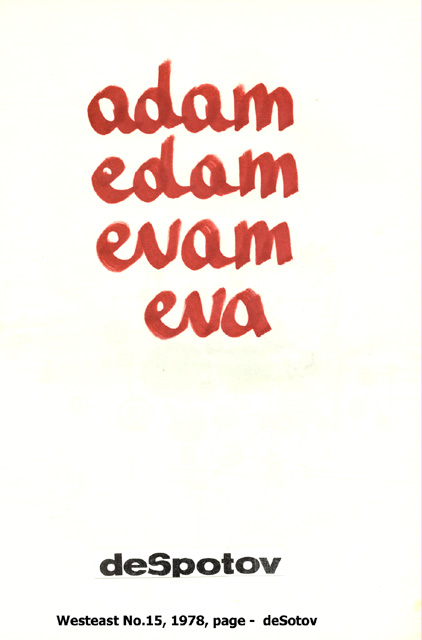 adam
edam
evam
eva
deSpotov
Westeast No.15, 1978, page - deSotov